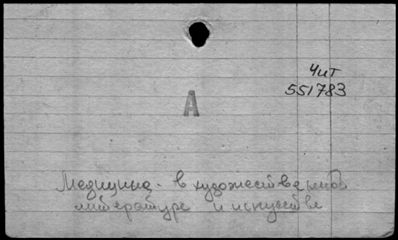 Чит
551783
А
Медицина - в художественной
литературе и искусстве